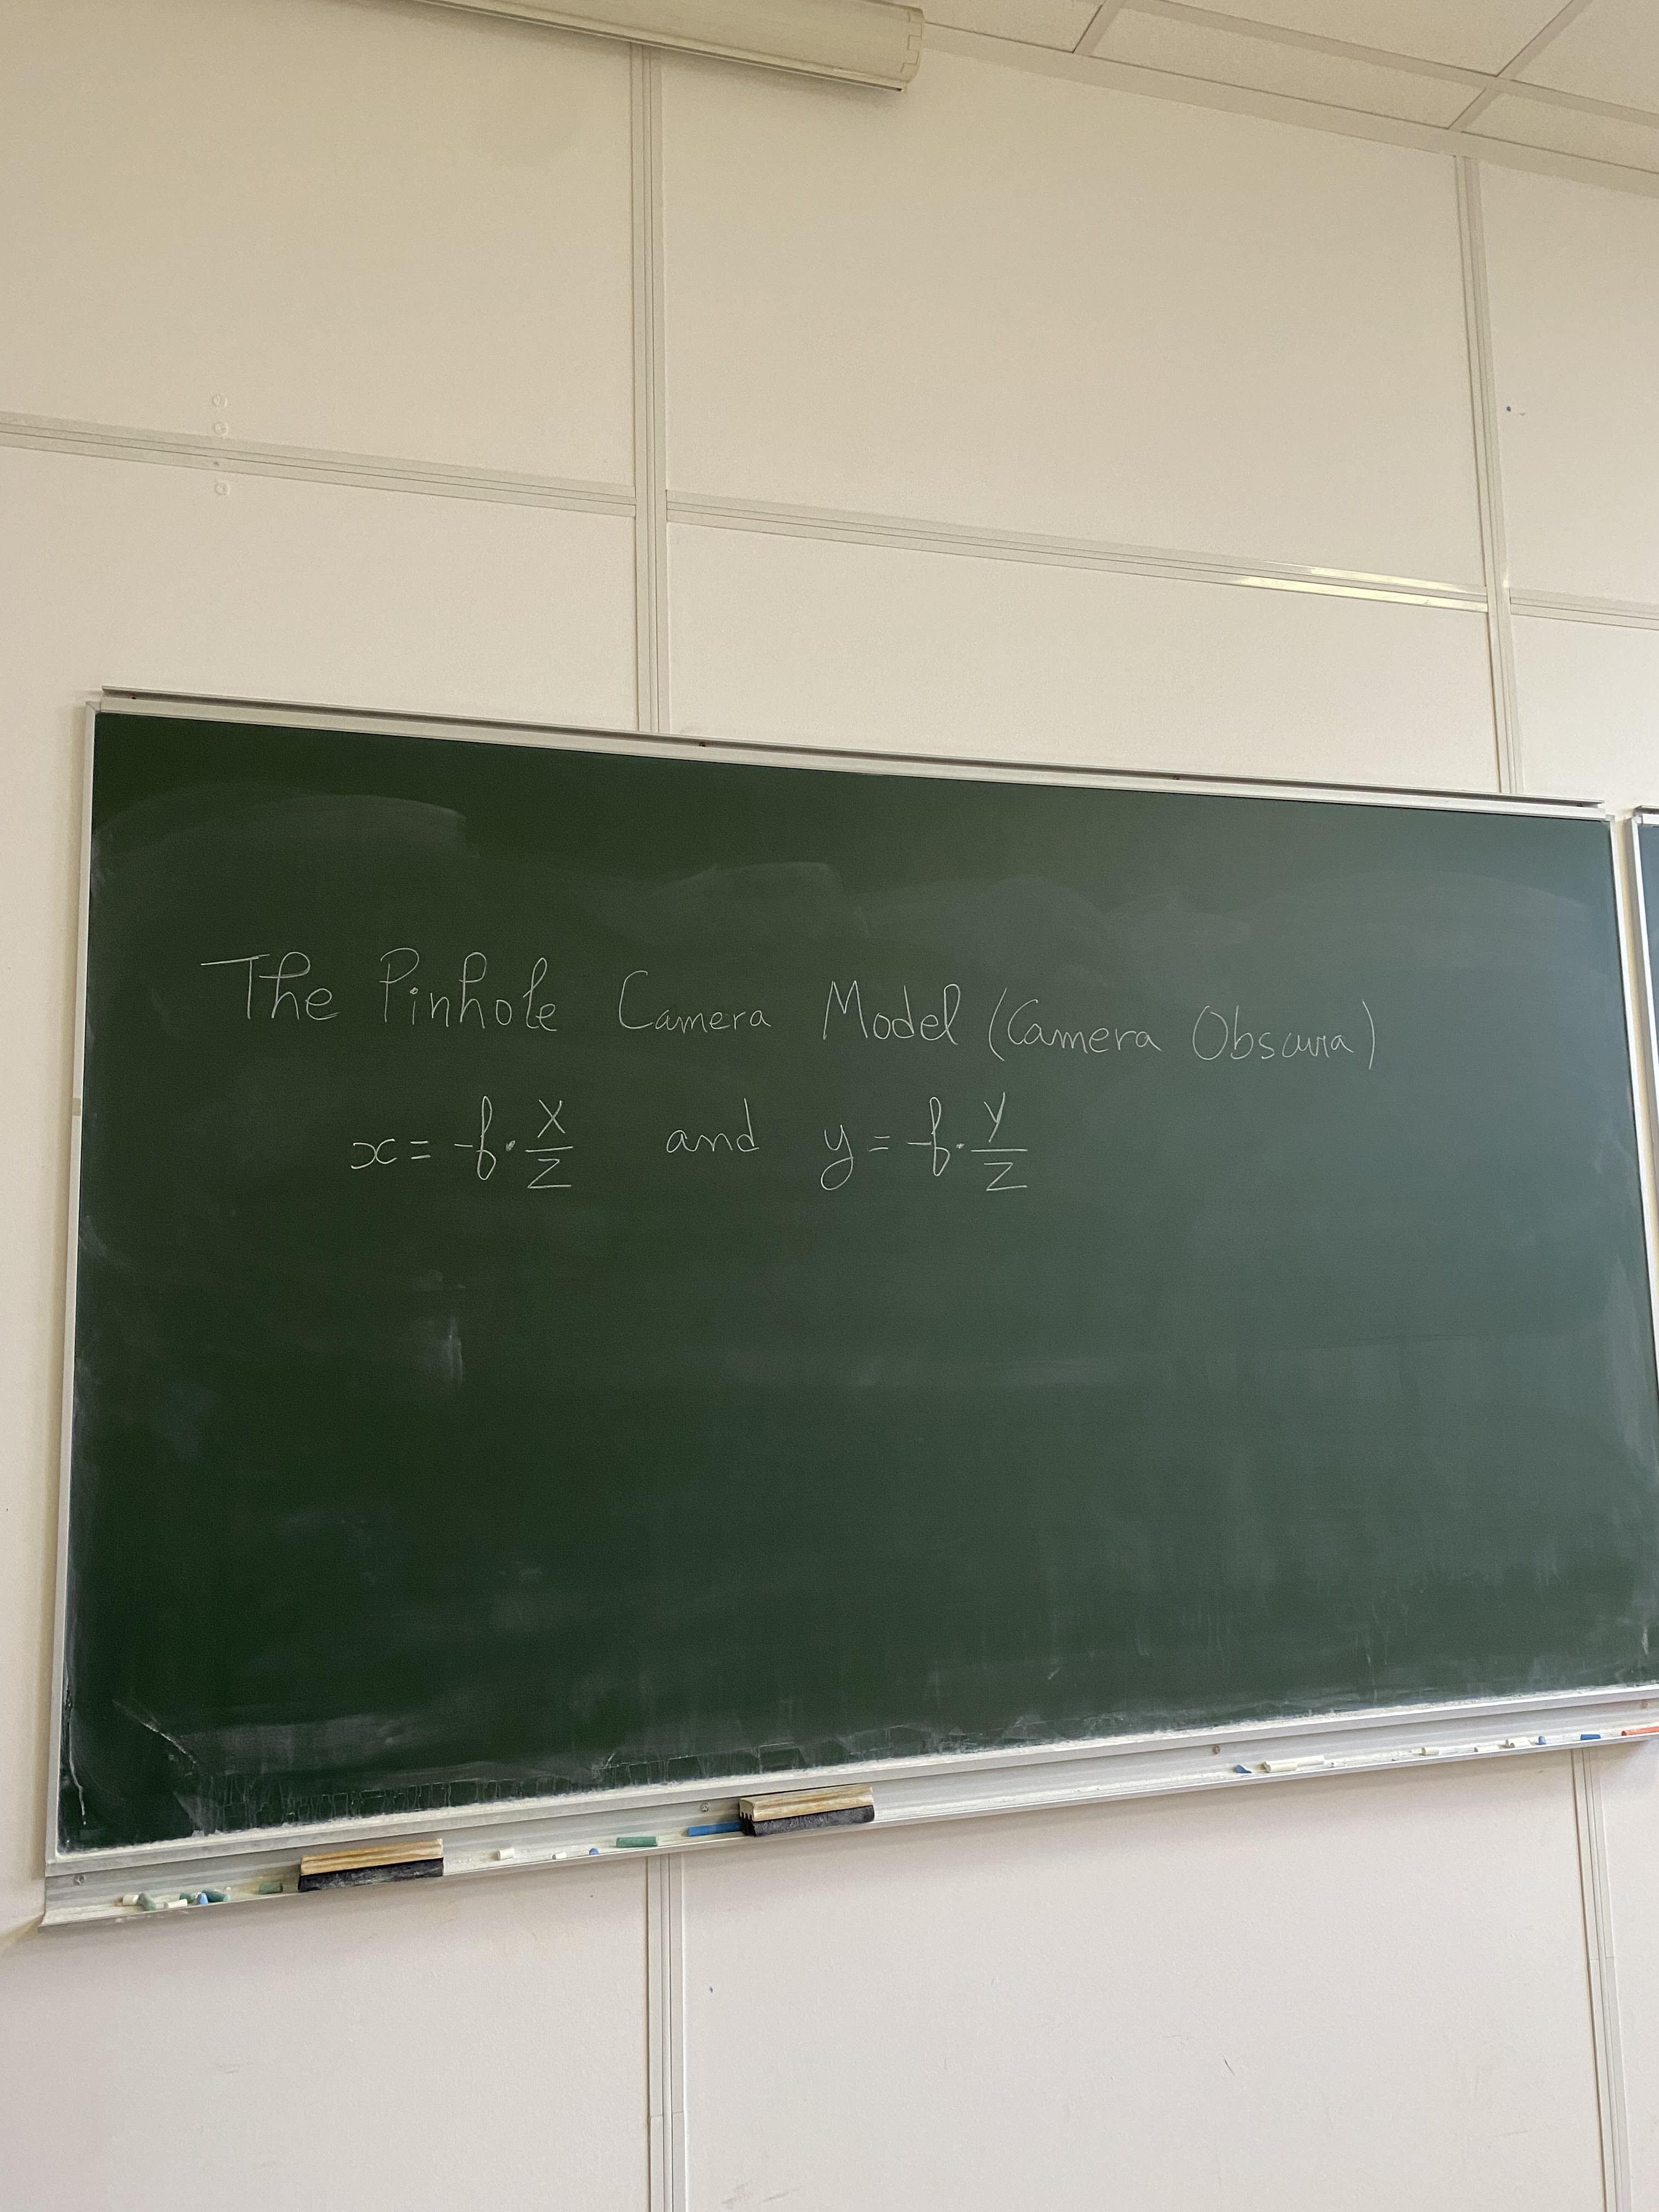 The Pinhole Camera Model (Camera Obscura)
x = f · X/Z and y = f · Y/Z